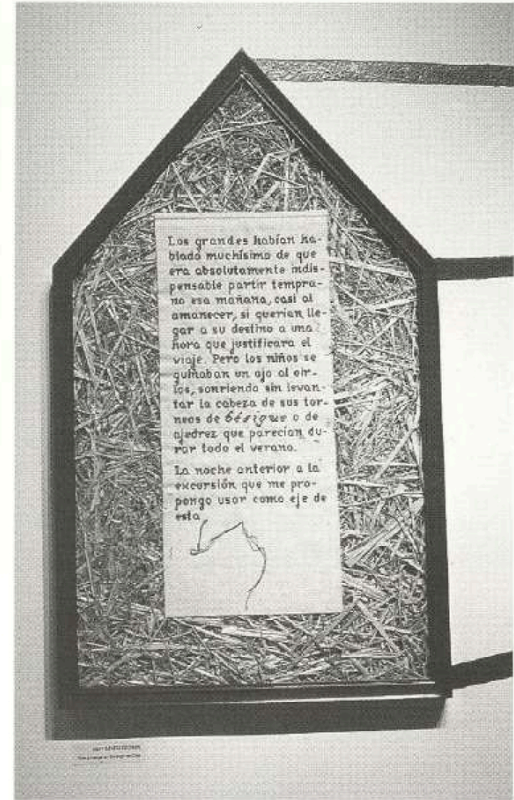 Los grandes habían ha-
blado muchísimo de que
era absolutamente indis-
pensable partir tempra-
no esa mañana, casi al
amanecer, si querían lle-
gar a su destino a una
hora que justificara el
viaje. Pero los niños se
guiñaban un ojo al oir-
los, sonriendo sin levan-
tar la cabeza de sus tor-
neos de bésigue o de
ajedrez que parecían du-
rar todo el verano.
La noche anterior a la
excursión que me pro-
pongo usar como eje de
esta